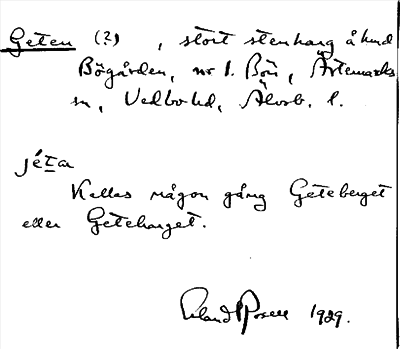 Geten (?), stort stenharg å hmd
Bögården, nr 1. Bön, Ärtemarks
sn, Vedbo hd, Älvsb. l.
jéta
Kallas någon gång Geteberget
eller Geteharget.
Erland Rosell 1929.